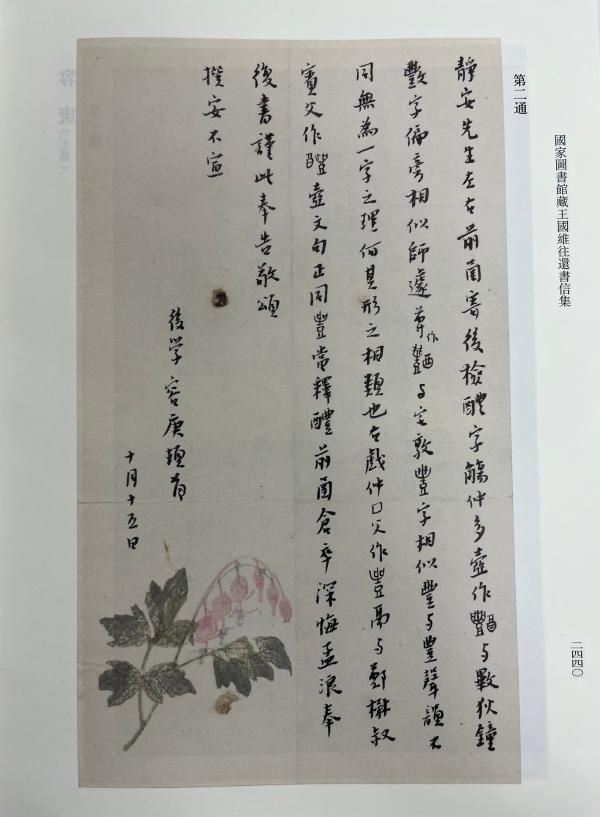 國家圖書館藏王國維往還書信集
二四四〇
第二通
靜安先生左右前函寄後檢醴字觴仲多壺作與斁狄鐘
斁字偏旁相似師遽尊作與宅敦豐字相似豊與豐聲韻不
同無為一字之理何其形之相類也右戲仲口父作豐鬲與鄭楙叔
賓父作醴壺文句正同豐當釋醴前函倉卒深悔孟浪奉
復書謹此奉告敬頌
撰安不宣
後學容庚頓首
十月十五日
容庚（七通）